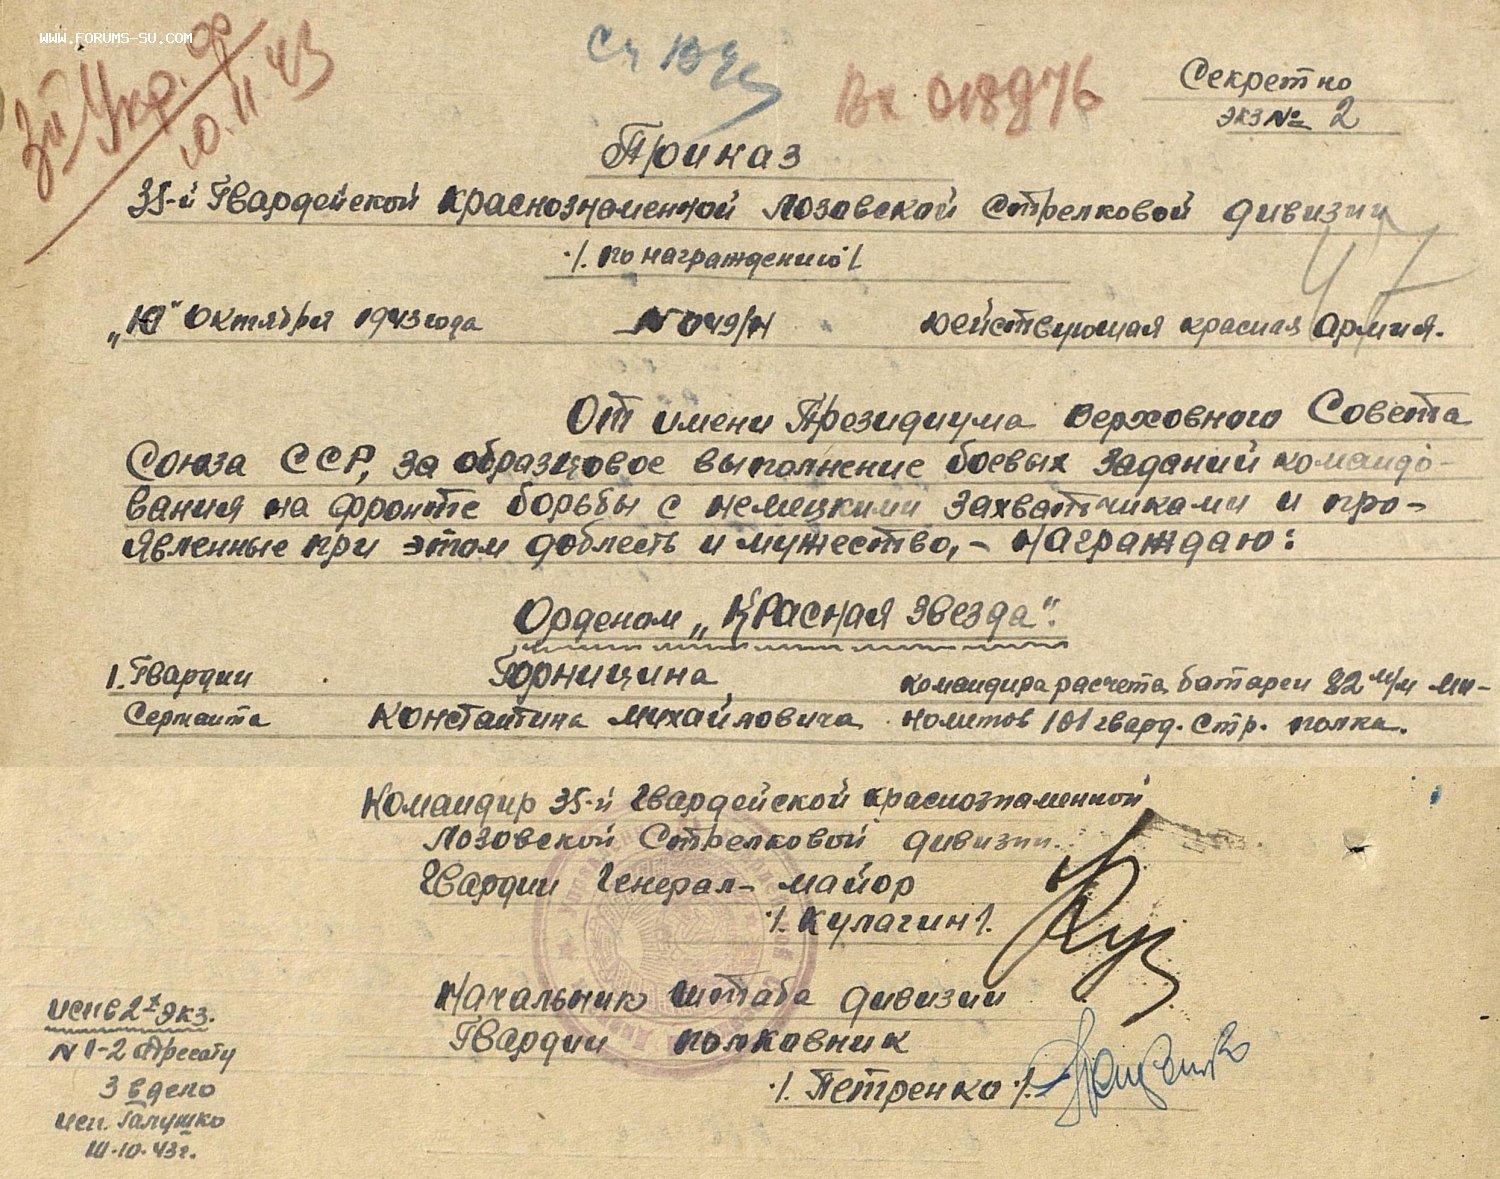 www.forums-su.com
3й Укр. фр
10.11.43
Вх 018976
Секретно
экз № 2
Приказ
35-й Гвардейской краснознаменной Лозовской Стрелковой дивизии
./. по награждению /.
„10" октября 1943 года № 049/н Действующая красная Армия.
От имени Президиума Верховного Совета
Союза ССР, за образцовое выполнение боевых заданий командо-
вания на фронте борьбы с немецкими захватчиками и про-
явленные при этом доблесть и мужество, - Награждаю:
Орденом „Красная Звезда".
1. Гвардии Горницина командира расчета батареи 82 м/м ми-
Сержанта Константина Михайловича нометов 101 гвард. Стр. полка.
Командир 35-й Гвардейской краснознаменной
Лозовской Стрелковой дивизии
Гвардии Генерал-майор
./. Кулагин /.
Начальник штаба дивизии
Гвардии полковник
./. Петренко ./.
исп в 2х экз.
№ 1-2 адресату
3 в дело
исп. Галушко
10.43г.